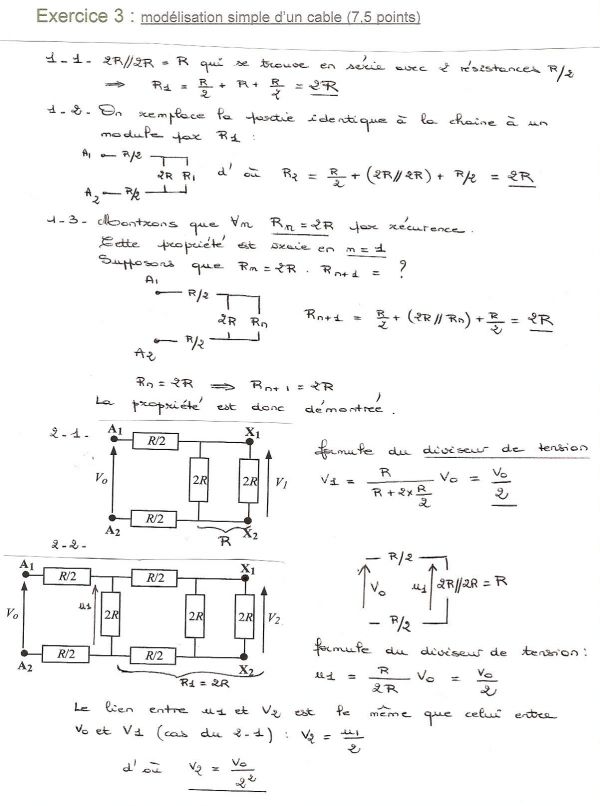 Exercice 3 : modélisation simple d'un cable (7,5 points)
1-1- 2R//2R = R qui se trouve en série avec 2 résistances R/2
⇒ R1 = R/2 + R + R/2 = 2R
1-2- On remplace la partie identique à la chaine à un
module par R1 :
A1 R/2
2R R1 d'où R2 = R/2 + (2R//2R) + R/2 = 2R
A2 R/2
1-3- Montrons que ∀n Rn = 2R par récurence.
Cette propriété est vraie en n = 1
Supposons que Rn = 2R . Rn+1 = ?
A1
R/2
2R Rn Rn+1 = R/2 + (2R//Rn) + R/2 = 2R
R/2
A2
Rn = 2R ⇒ Rn+1 = 2R
La propriété est donc démontrée.
2-1- A1 R/2 X1
formule du diviseur de tension
Vo 2R 2R V1
V1 = R/(R + 2×R/2) Vo = Vo/2
A2 R/2 X2
R
2-2-
A1 R/2 R/2 X1
Vo u1 2R 2R 2R V2
A2 R/2 R/2 X2
R1 = 2R
R/2
Vo u1 2R//2R = R
R/2
formule du diviseur de tension :
u1 = R/2R Vo = Vo/2
Le lien entre u1 et V2 est le même que celui entre
Vo et V1 (cas du 2-1) : V2 = u1/2
d'où V2 = Vo/2²